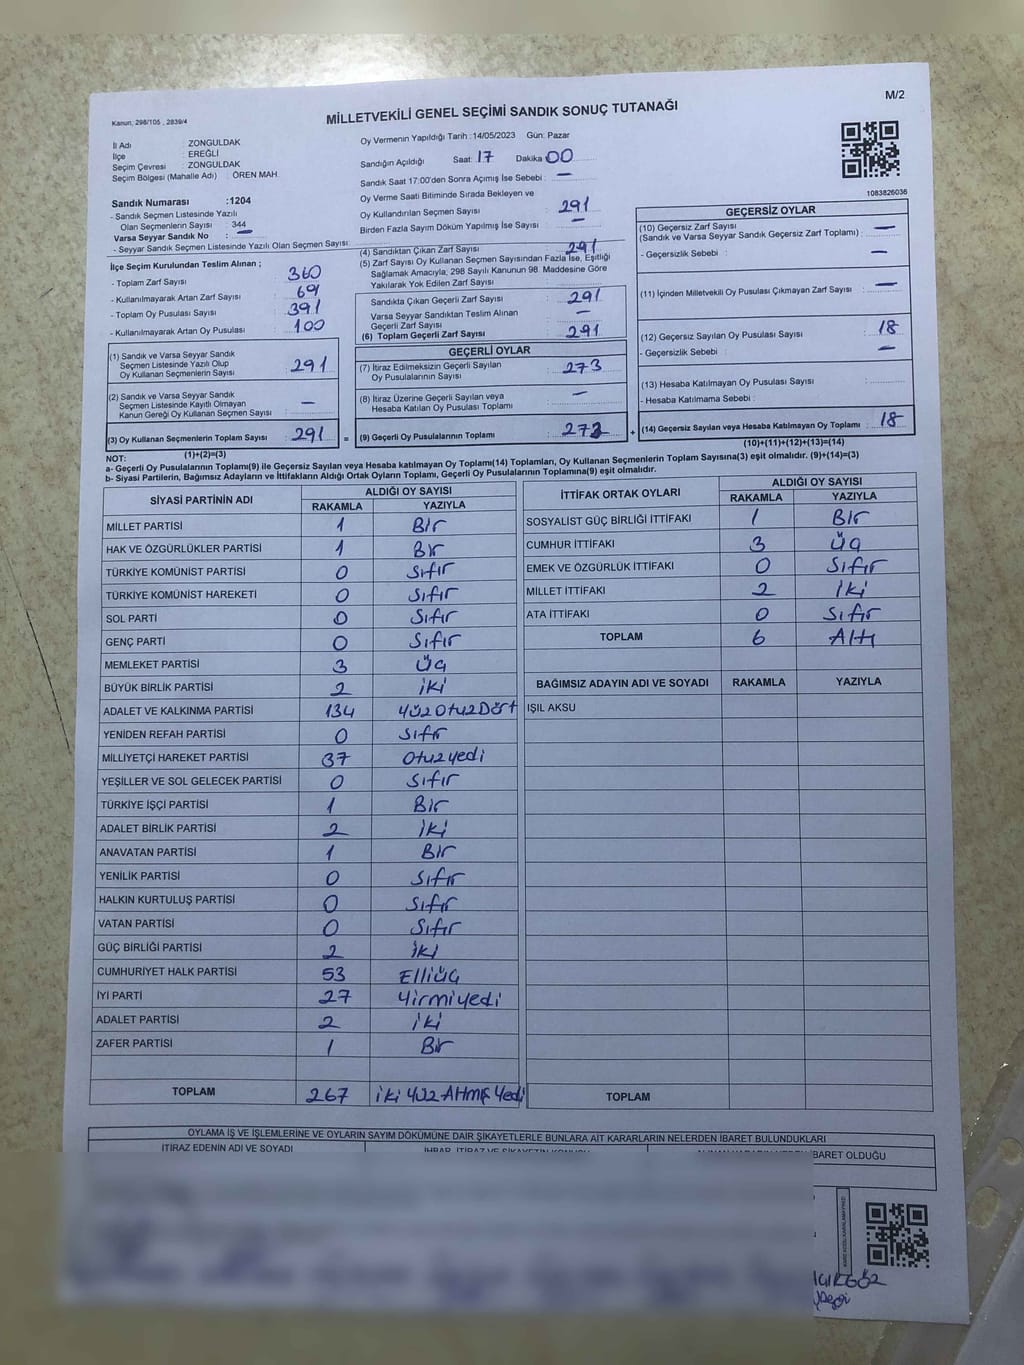 M/2
MİLLETVEKİLİ GENEL SEÇİMİ SANDIK SONUÇ TUTANAĞI
Kanun, 298/105 , 2839/4
İl Adı : ZONGULDAK
İlçe : EREĞLİ
Seçim Çevresi : ZONGULDAK
Seçim Bölgesi (Mahalle Adı) : ÖREN MAH.
Sandık Numarası :1204
- Sandık Seçmen Listesinde Yazılı
Olan Seçmenlerin Sayısı : 344
Varsa Seyyar Sandık No : —
- Seyyar Sandık Seçmen Listesinde Yazılı Olan Seçmen Sayısı:
İlçe Seçim Kurulundan Teslim Alınan ;
- Toplam Zarf Sayısı : 360
- Kullanılmayarak Artan Zarf Sayısı : 69
- Toplam Oy Pusulası Sayısı : 391
- Kullanılmayarak Artan Oy Pusulası : 100
(1) Sandık ve Varsa Seyyar Sandık
Seçmen Listesinde Yazılı Olup
Oy Kullanan Seçmenlerin Sayısı : 291
(2) Sandık ve Varsa Seyyar Sandık
Seçmen Listesinde Kayıtlı Olmayan
Kanun Gereği Oy Kullanan Seçmen Sayısı : —
(3) Oy Kullanan Seçmenlerin Toplam Sayısı : 291 =
(1)+(2)=(3)
Oy Vermenin Yapıldığı Tarih :14/05/2023 Gün: Pazar
Sandığın Açıldığı Saat: 17 Dakika :00
Sandık Saat 17:00'den Sonra Açımış İse Sebebi : —
Oy Verme Saati Bitiminde Sırada Bekleyen ve
Oy Kullandırılan Seçmen Sayısı : 291
Birden Fazla Sayım Döküm Yapılmış İse Sayısı : —
(4) Sandıktan Çıkan Zarf Sayısı : 291
(5) Zarf Sayısı Oy Kullanan Seçmen Sayısından Fazla İse, Eşitliği
Sağlamak Amacıyla, 298 Sayılı Kanunun 98. Maddesine Göre
Yakılarak Yok Edilen Zarf Sayısı :
Sandıkta Çıkan Geçerli Zarf Sayısı : 291
Varsa Seyyar Sandıktan Teslim Alınan
Geçerli Zarf Sayısı : —
(6) Toplam Geçerli Zarf Sayısı : 291
GEÇERLİ OYLAR
(7) İtiraz Edilmeksizin Geçerli Sayılan
Oy Pusulalarının Sayısı : 273
(8) İtiraz Üzerine Geçerli Sayılan veya
Hesaba Katılan Oy Pusulası Toplamı : —
(9) Geçerli Oy Pusulalarının Toplamı : 273 +
1083826036
GEÇERSİZ OYLAR
(10) Geçersiz Zarf Sayısı
(Sandık ve Varsa Seyyar Sandık Geçersiz Zarf Toplamı) : —
- Geçersizlik Sebebi : —
(11) İçinden Milletvekili Oy Pusulası Çıkmayan Zarf Sayısı : —
(12) Geçersiz Sayılan Oy Pusulası Sayısı : 18
- Geçersizlik Sebebi : —
(13) Hesaba Katılmayan Oy Pusulası Sayısı :
- Hesaba Katılmama Sebebi :
(14) Geçersiz Sayılan veya Hesaba Katılmayan Oy Toplamı : 18
(10)+(11)+(12)+(13)=(14)
NOT:
a- Geçerli Oy Pusulalarının Toplamı(9) ile Geçersiz Sayılan veya Hesaba katılmayan Oy Toplamı(14) Toplamları, Oy Kullanan Seçmenlerin Toplam Sayısına(3) eşit olmalıdır. (9)+(14)=(3)
b- Siyasi Partilerin, Bağımsız Adayların ve İttifakların Aldığı Ortak Oyların Toplamı, Geçerli Oy Pusulalarının Toplamına(9) eşit olmalıdır.
SİYASİ PARTİNİN ADI ALDIĞI OY SAYISI
RAKAMLA YAZIYLA
MİLLET PARTİSİ 1 Bir
HAK VE ÖZGÜRLÜKLER PARTİSİ 1 Bir
TÜRKİYE KOMÜNİST PARTİSİ 0 Sıfır
TÜRKİYE KOMÜNİST HAREKETİ 0 Sıfır
SOL PARTİ 0 Sıfır
GENÇ PARTİ 0 Sıfır
MEMLEKET PARTİSİ 3 Üç
BÜYÜK BİRLİK PARTİSİ 2 iki
ADALET VE KALKINMA PARTİSİ 134 YüzOtuzDört
YENİDEN REFAH PARTİSİ 0 Sıfır
MİLLİYETÇİ HAREKET PARTİSİ 37 Otuzyedi
YEŞİLLER VE SOL GELECEK PARTİSİ 0 Sıfır
TÜRKİYE İŞÇİ PARTİSİ 1 Bir
ADALET BİRLİK PARTİSİ 2 iki
ANAVATAN PARTİSİ 1 Bir
YENİLİK PARTİSİ 0 Sıfır
HALKIN KURTULUŞ PARTİSİ 0 Sıfır
VATAN PARTİSİ 0 Sıfır
GÜÇ BİRLİĞİ PARTİSİ 2 iki
CUMHURİYET HALK PARTİSİ 53 Elliüç
İYİ PARTİ 27 Yirmiyedi
ADALET PARTİSİ 2 iki
ZAFER PARTİSİ 1 Bir
TOPLAM 267 iki yüz Altmış Yedi
İTTİFAK ORTAK OYLARI ALDIĞI OY SAYISI
RAKAMLA YAZIYLA
SOSYALİST GÜÇ BİRLİĞİ İTTİFAKI 1 Bir
CUMHUR İTTİFAKI 3 Üç
EMEK VE ÖZGÜRLÜK İTTİFAKI 0 Sıfır
MİLLET İTTİFAKI 2 iki
ATA İTTİFAKI 0 Sıfır
TOPLAM 6 Altı
BAĞIMSIZ ADAYIN ADI VE SOYADI RAKAMLA YAZIYLA
IŞIL AKSU
TOPLAM
OYLAMA İŞ VE İŞLEMLERİNE VE OYLARIN SAYIM DÖKÜMÜNE DAİR ŞİKAYETLERLE BUNLARA AİT KARARLARIN NELERDEN İBARET BULUNDUKLARI
İTİRAZ EDENİN ADI VE SOYADI İHBAR, İTİRAZ VE ŞİKAYETİN KONUSU İBARET OLDUĞU